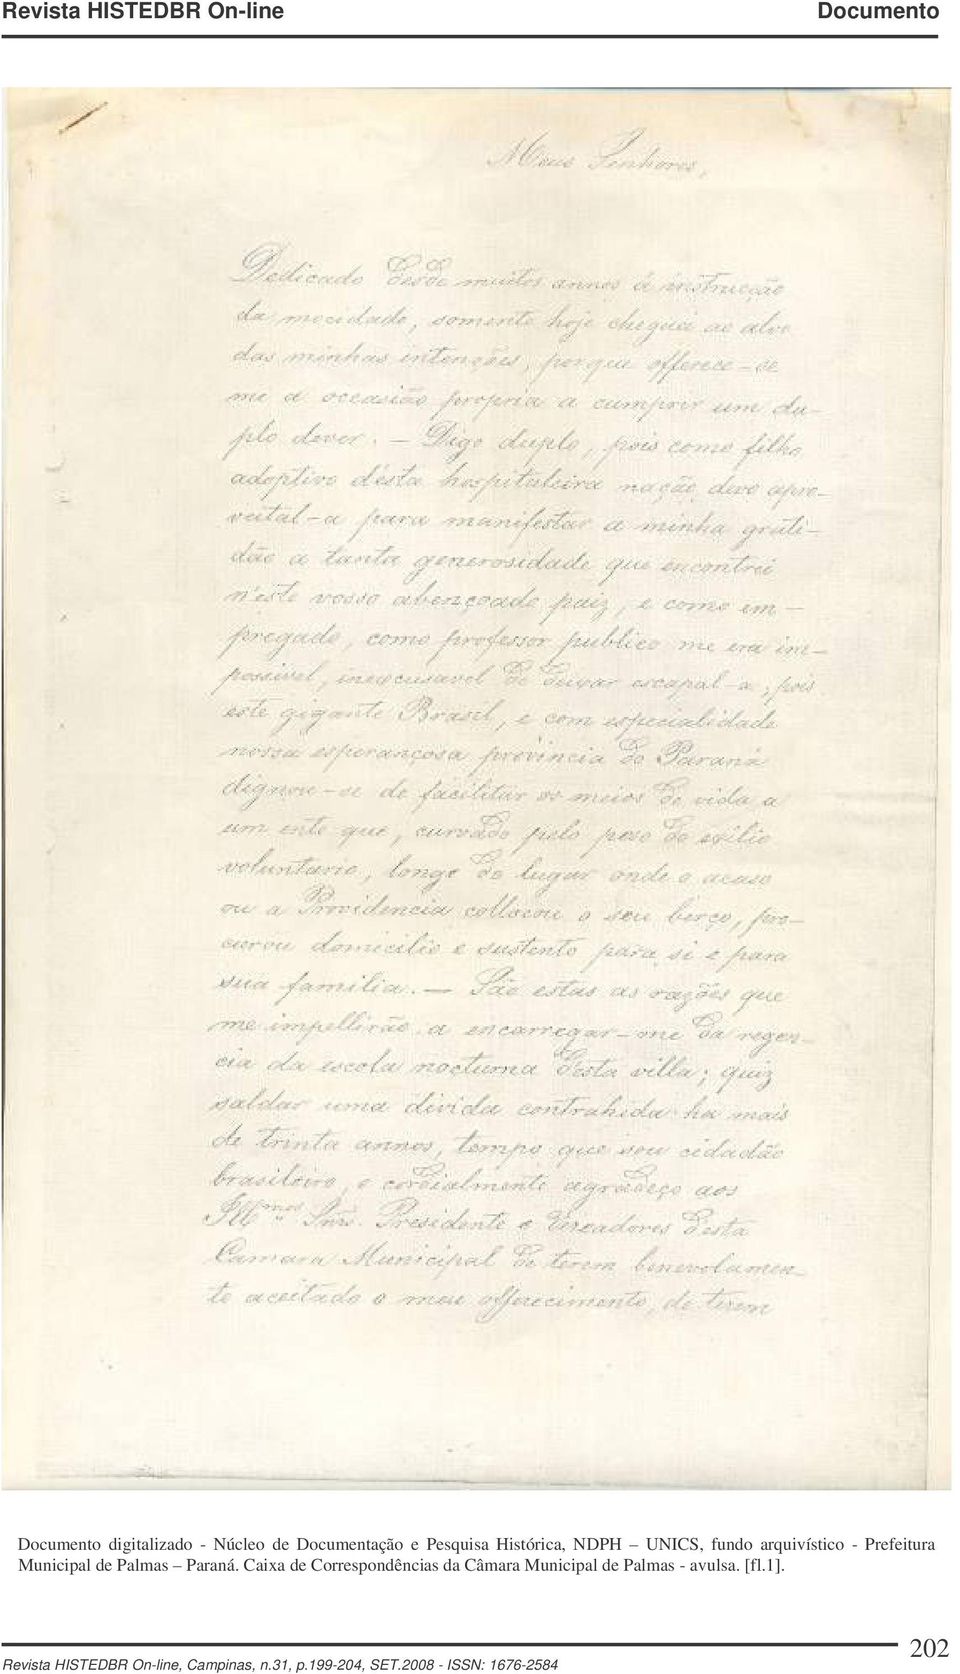 Revista HISTEDBR On-line
Documento
Meus Senhores,
Dedicado desde muitos annos á instrucção
da mocidade, somente hoje cheguei ao alvo
das minhas intenções, porque offerece-se
me a occasião propria a cumprir um du-
plo dever. — Digo duplo, pois como filho
adoptivo d'esta hospitaleira nação, devo apro-
veital-a para manifestar a minha grati-
dão a tanta generosidade que encontrei
n'este vosso abençoado paiz, e como em-
pregado, como professor publico me era im-
possivel, inexcusavel de deixar escapal-a; pois
este gigante Brasil, e com especialidade
nossa esperançosa provincia do Paraná
dignou-se de facilitar os meios de vida a
um ente que, curvado pelo peso do exilio
voluntario, longe do lugar onde o acaso
ou a Providencia collocou o seu berço, pro-
curou domicilio e sustento para si e para
sua familia. — São estas as razões que
me impellirão a encarregar-me da regen-
cia da escola nocturna desta villa; quiz
saldar uma divida contrahida ha mais
de trinta annos, tempo que sou cidadão
brasileiro, e cordialmente agradeço aos
Ill.mos Snrs. Presidente e Vereadores desta
Camara Municipal de terem benevolamen-
te aceitado o meu offerecimento, de terem
Documento digitalizado - Núcleo de Documentação e Pesquisa Histórica, NDPH – UNICS, fundo arquivístico - Prefeitura
Municipal de Palmas – Paraná. Caixa de Correspondências da Câmara Municipal de Palmas - avulsa. [fl.1].
Revista HISTEDBR On-line, Campinas, n.31, p.199-204, SET.2008 - ISSN: 1676-2584
202